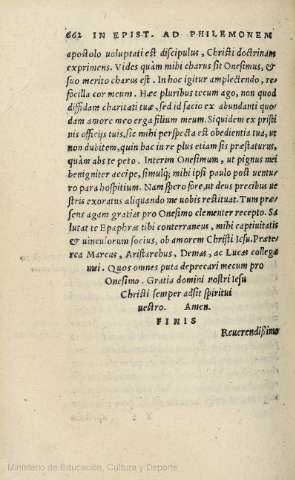 662 IN EPIST. AD PHILEMONEM
apostolo uoluptati est discipulus, Christi doctrinam
exprimens. Vides quàm mihi charus sit Onesimus, &
suo merito charus est. In hoc igitur amplectendo, re-
focilla cor meum. Hæc pluribus tecum ago, non quod
diffidam charitati tuæ, sed id facio ex abundanti quo-
dam amore meo erga filium meum. Siquidem ex pristi
nis officijs tuis, sic mihi perspecta est obedientia tua, ut
non dubitem, quin hac in re plus etiam sis præstaturus,
quàm abs te peto. Interim Onesimum, ut pignus mei
benigniter accipe, simulq; mihi ipsi paulo post ventu
ro para hospitium. Nam spero fore, ut deus precibus ue
stris exoratus aliquando me uobis restituat. Tum præ
sens agam gratias pro Onesimo clementer recepto. Sa
lutat te Epaphras tibi conterraneus, mihi captiuitatis
& uinculorum socius, ob amorem Christi Iesu. Præte-
rea Marcus, Aristarchus, Demas, ac Lucas collegæ
mei. Quos omnes puta deprecari mecum pro
Onesimo. Gratia domini nostri Iesu
Christi semper adsit spiritui
uestro. Amen.
FINIS
Reuerendissimo
Ministerio de Educación, Cultura y Deporte